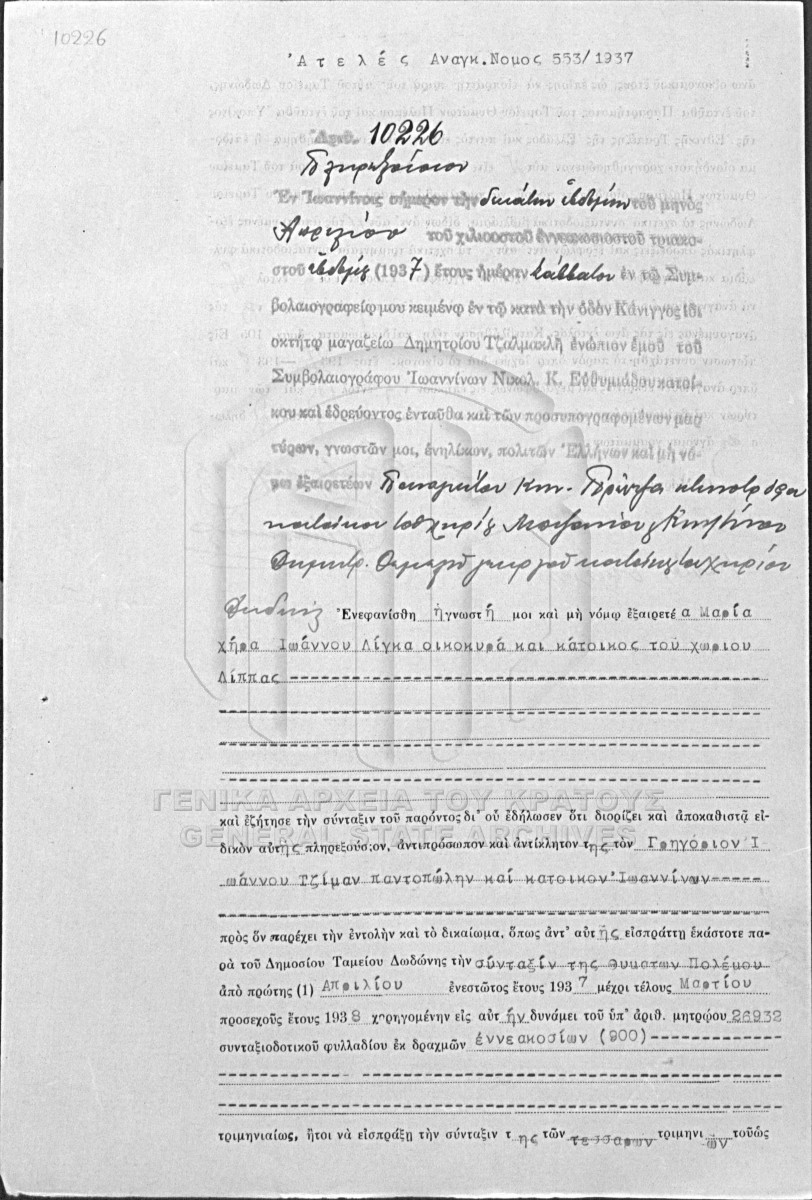 10226
Ἀτελές Αναγκ.Νομος 553/1937
Ἀριθ. 10226
Πληρεξούσιον
Ἐν Ἰωαννίνοις σήμερον τὴν δεκάτην ἑβδόμην τοῦ μηνὸς
Απριλίου τοῦ χιλιοστοῦ ἐννεακοσιοστοῦ τριακο-
στοῦ ἑβδόμου (1937) ἔτους ἡμέραν Σάββατον ἐν τῷ Συμ-
βολαιογραφείῳ μου κειμένῳ ἐν τῷ κατὰ τὴν ὁδὸν Κάνιγγος ἰδι
οκτήτῳ μαγαζείῳ Δημητρίου Τζαλμακλῆ ἐνώπιον ἐμοῦ τοῦ
Συμβολαιογράφου Ἰωαννίνων Νικολ. Κ. Εὐθυμιάδου κατοί-
κου καὶ ἑδρεύοντος ἐνταῦθα καὶ τῶν προσυπογραφομένων μαρ
τύρων, γνωστῶν μοι, ἐνηλίκων, πολιτῶν Ἑλλήνων καὶ μὴ νό-
μοι ἐξαιρετέων Παναγιώτου Κων. κτηνοτρόφου
κατοίκου χωρίου
Δημητρ. γεωργοῦ κατοίκου χωρίου
Ἐνεφανίσθη ἡ γνωστή μοι καὶ μὴ νόμῳ ἐξαιρετέα Μαρία
χήρα Ιωάννου Λίγκα οικοκυρά και κάτοικος τοῦ χωριου
Λίππας
ΓΕΝΙΚΑ ΑΡΧΕΙΑ ΤΟΥ ΚΡΑΤΟΥΣ
καὶ ἐζήτησε τὴν σύνταξιν τοῦ παρόντος δι' οὗ ἐδήλωσεν ὅτι διορίζει καὶ ἀποκαθιστᾷ εἰ-
GENERAL STATE ARCHIVES
δικὸν αὐτῆς πληρεξούσιον, ἀντιπρόσωπον καὶ ἀντίκλητον της τὸν Γρηγόριον Ἰ
ωάννου Τζίμαν παντοπώλην καί κατοικον Ἰωαννίνων
πρὸς ὃν παρέχει τὴν ἐντολὴν καὶ τὸ δικαίωμα, ὅπως ἀντ' αὐτῆς εἰσπράττῃ ἑκάστοτε πα-
ρὰ τοῦ Δημοσίου Ταμείου Δωδώνης τὴν σύνταξίν της θυματων Πολέμου
ἀπὸ πρώτης (1) Απριλίου ἐνεστῶτος ἔτους 1937 μέχρι τέλους Μαρτίου
προσεχοῦς ἔτους 1938 χορηγομένην εἰς αὐτήν δυνάμει τοῦ ὑπ' ἀριθ. μητρῴου 26932
συνταξιοδοτικοῦ φυλλαδίου ἐκ δραχμῶν ἐννεακοσίων (900)
τριμηνιαίως, ἤτοι νὰ εἰσπράξῃ τὴν σύνταξιν της τῶν τεσσαρων τριμηνιῶν τοῦ ὡς